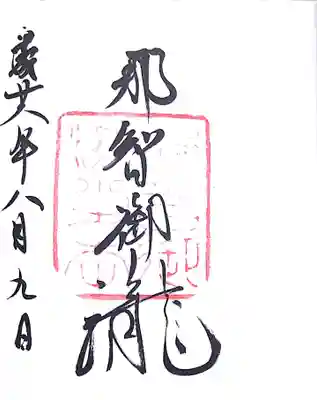 那智御瀧
平成廿八年八月九日